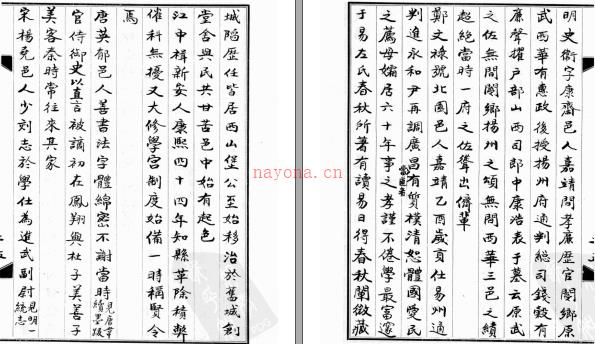 明史衛字康齋邑人嘉靖間孝廉歷官閿鄉原
武西華有惠政後授揚州府通判總司錢穀有
廉聲擢戶部山西司郎中康浩表于墓云原武
之佐無閒閿鄉揚州之頌無閒西華三邑之績
超絕當時一府之佐聳出儕輩
鄭文祿號北園邑人嘉靖乙酉歲貢仕易州通
判進永和尹再調廣昌有質樸清恕體國愛民
之薦母孀居六十年事之孝謹不倦學最富邃
于易左氏春秋所著有讀易日得春秋闡微藏
城陷歷任皆居西山堡公至始移治於舊城創
堂舍與民共甘苦邑中始有起色
江中楫新安人康熙四十四年知縣革除積弊
催科無擾又大修學宮制度始備一時稱賢令
焉
唐英郁邑人善書法字體綿密不謝當時見唐韋續墨藪
官侍御史以直言被謫初在鳳翔與杜子美善子
美客秦時常往來其家
宋楊兗邑人少刻志於學仕為進武副尉見明一統志
nayona.cn